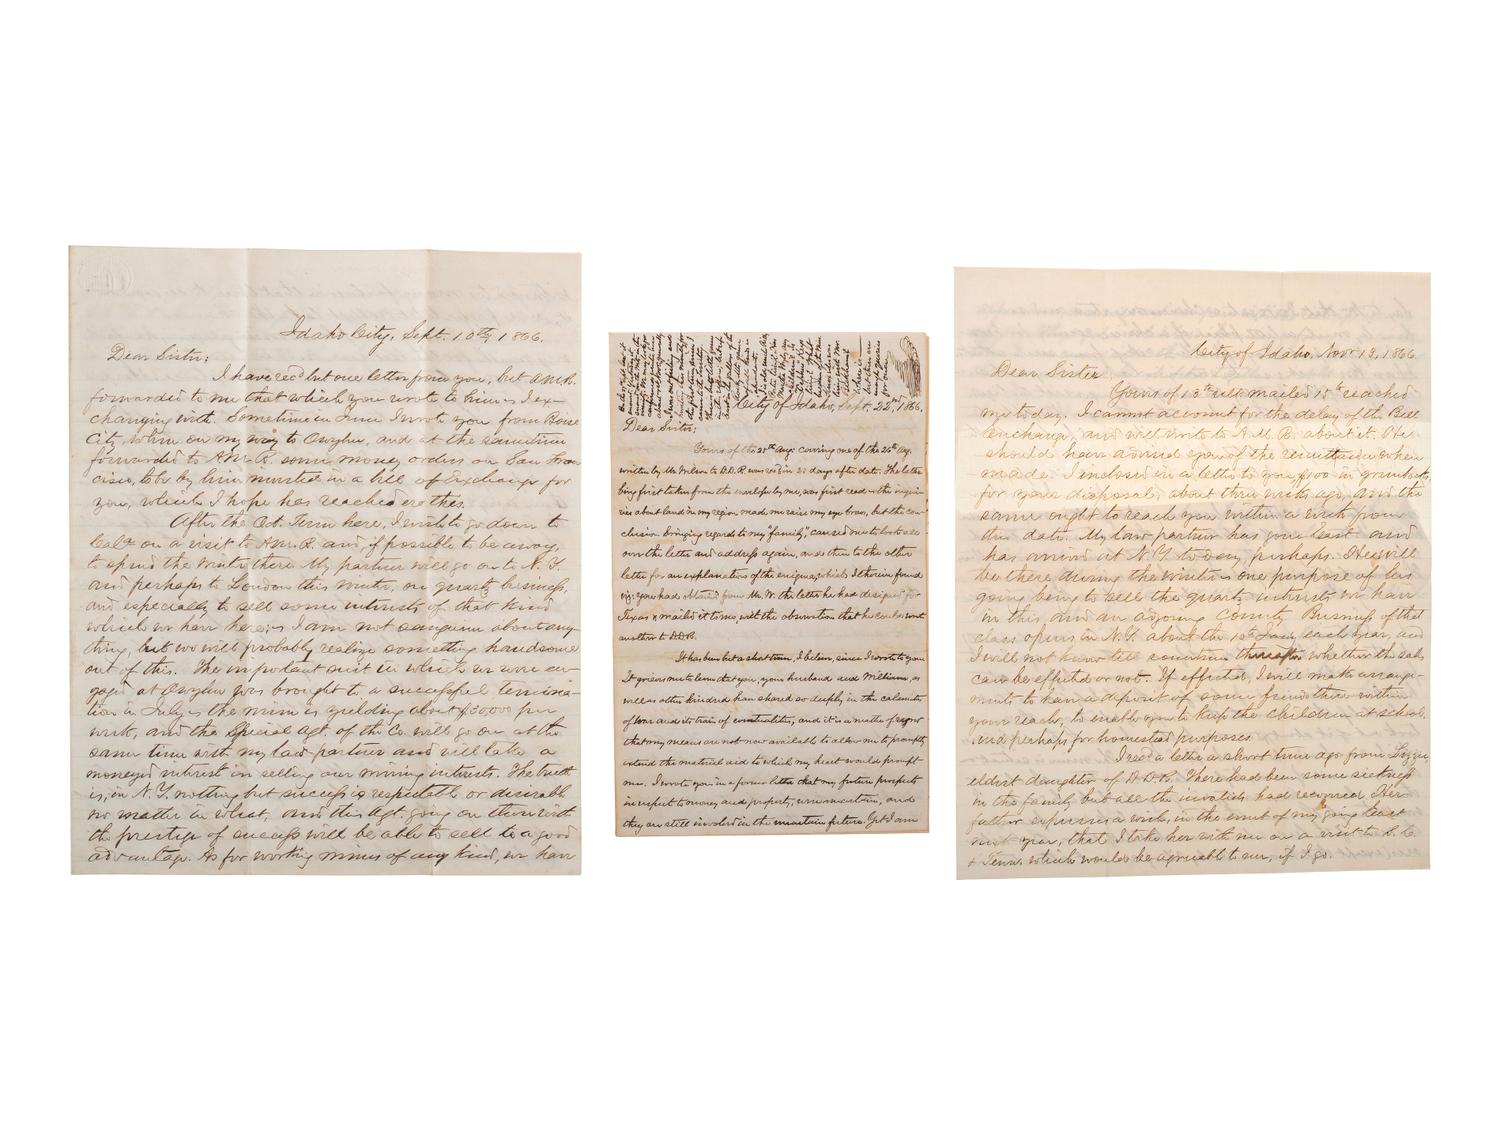 Idaho City, Sept. 10th, 1866.
Dear Sister;
I have recd but one letter from you, but A.M.R.
forwarded to me that which you wrote to him—is I ex-
changing with. Sometime in June I wrote you from Boise
City, when on my way to Owyhee, and at the same time
forwarded to A.M.R. some money orders on San Fran
cisco, to be by him invested in a bill of Exchange for
you, which I hope has reached ere this.
After the Oct. Term here, I wish to go down to
Cala on a visit to A.M.R. and, if possible to be away,
to spend the winter there. My partner will go on to N.Y.
and perhaps to London this winter, on quartz business,
and especially to sell some interests of that kind
which we have here; I am not sanguine about any-
thing, but we will probably realize something handsome
out of this. The important suit in which we were en-
gaged at Owyhee was brought to a successful termina-
tion in July, the mine is yielding about $30,000 per
week, and the Special Agt. of the Co. will go on at the
same time with my law partner and will take a
moneyed interest in selling our mining interests. The truth
is, in N.Y. nothing but success is respectable or desirable
no matter in what, and this Agt. going on there with
the prestige of success will be able to sell to a good
advantage. As for working mines of any kind, we have
City of Idaho, Sept. 22nd, 1866.
Dear Sister;
Yours of the 25th Aug: covering one of the 26th Aug.
written by Mr. Wilson to D.D.R. was recd in 21 days after date. The letter
being first taken from the envelope by me, was first read & the inquir-
ies about land in my region made me raise my eye brow, but the con-
clusion bringing regards to my "family," caused me to look all
over the letter and address again, and then to the other
letter for an explanation of the enigma, which I therein found
viz: you had obtained from Mr. W. the letter he had designed for
Texas & mailed it to me, with the observation that he could write
another to D.D.R.
It has been but a short time, I believe, since I wrote to you.
It grieves me to learn that you, your husband and William, as
well as other kindred have shared so deeply in the calamities
of war and its train of eventualities, and it is a matter of regret
that my means are not now available to allow me to promptly
extend the material aid to which my heart would prompt
me. I wrote you in a former letter that my future prospects
in respect to money and property, were uncertain, and
they are still involved in the uncertain future. Yet I am
City of Idaho, Novr 13, 1866.
Dear Sister
Yours of 13th ult. mailed 15th reached
me today. I cannot account for the delay of the Bill
Exchange, and will write to A.M.R. about it. He
should have advised you of the remittance when
made. I inclosed in a letter to you $100 in greenbacks,
for your disposal, about three weeks ago, and the
same ought to reach you within a week from
this date. My law partner has gone East and
has arrived at N.Y. today, perhaps. He will
be there during the winter—one purpose of his
going being to sell the quartz interests we have
in this, and an adjoining County. Business of that
class opens in N.Y. about the 1st Jany, each year, and
I will not know till sometime thereafter whether the sale
can be effected or not. If effected, I will make arrange-
ments to have a deposit of some funds there within
your reach, to enable you to keep the children at school
and perhaps for homestead purposes.
I recd a letter a short time ago from Lizzie
eldest daughter of D.D.R. There had been some sickness
in the family but all the invalids had recovered. Her
father expresses a wish, in the event of my going East
next year, that I take her with me on a visit to S.C.
& Tenn. which would be agreeable to me, if I go.